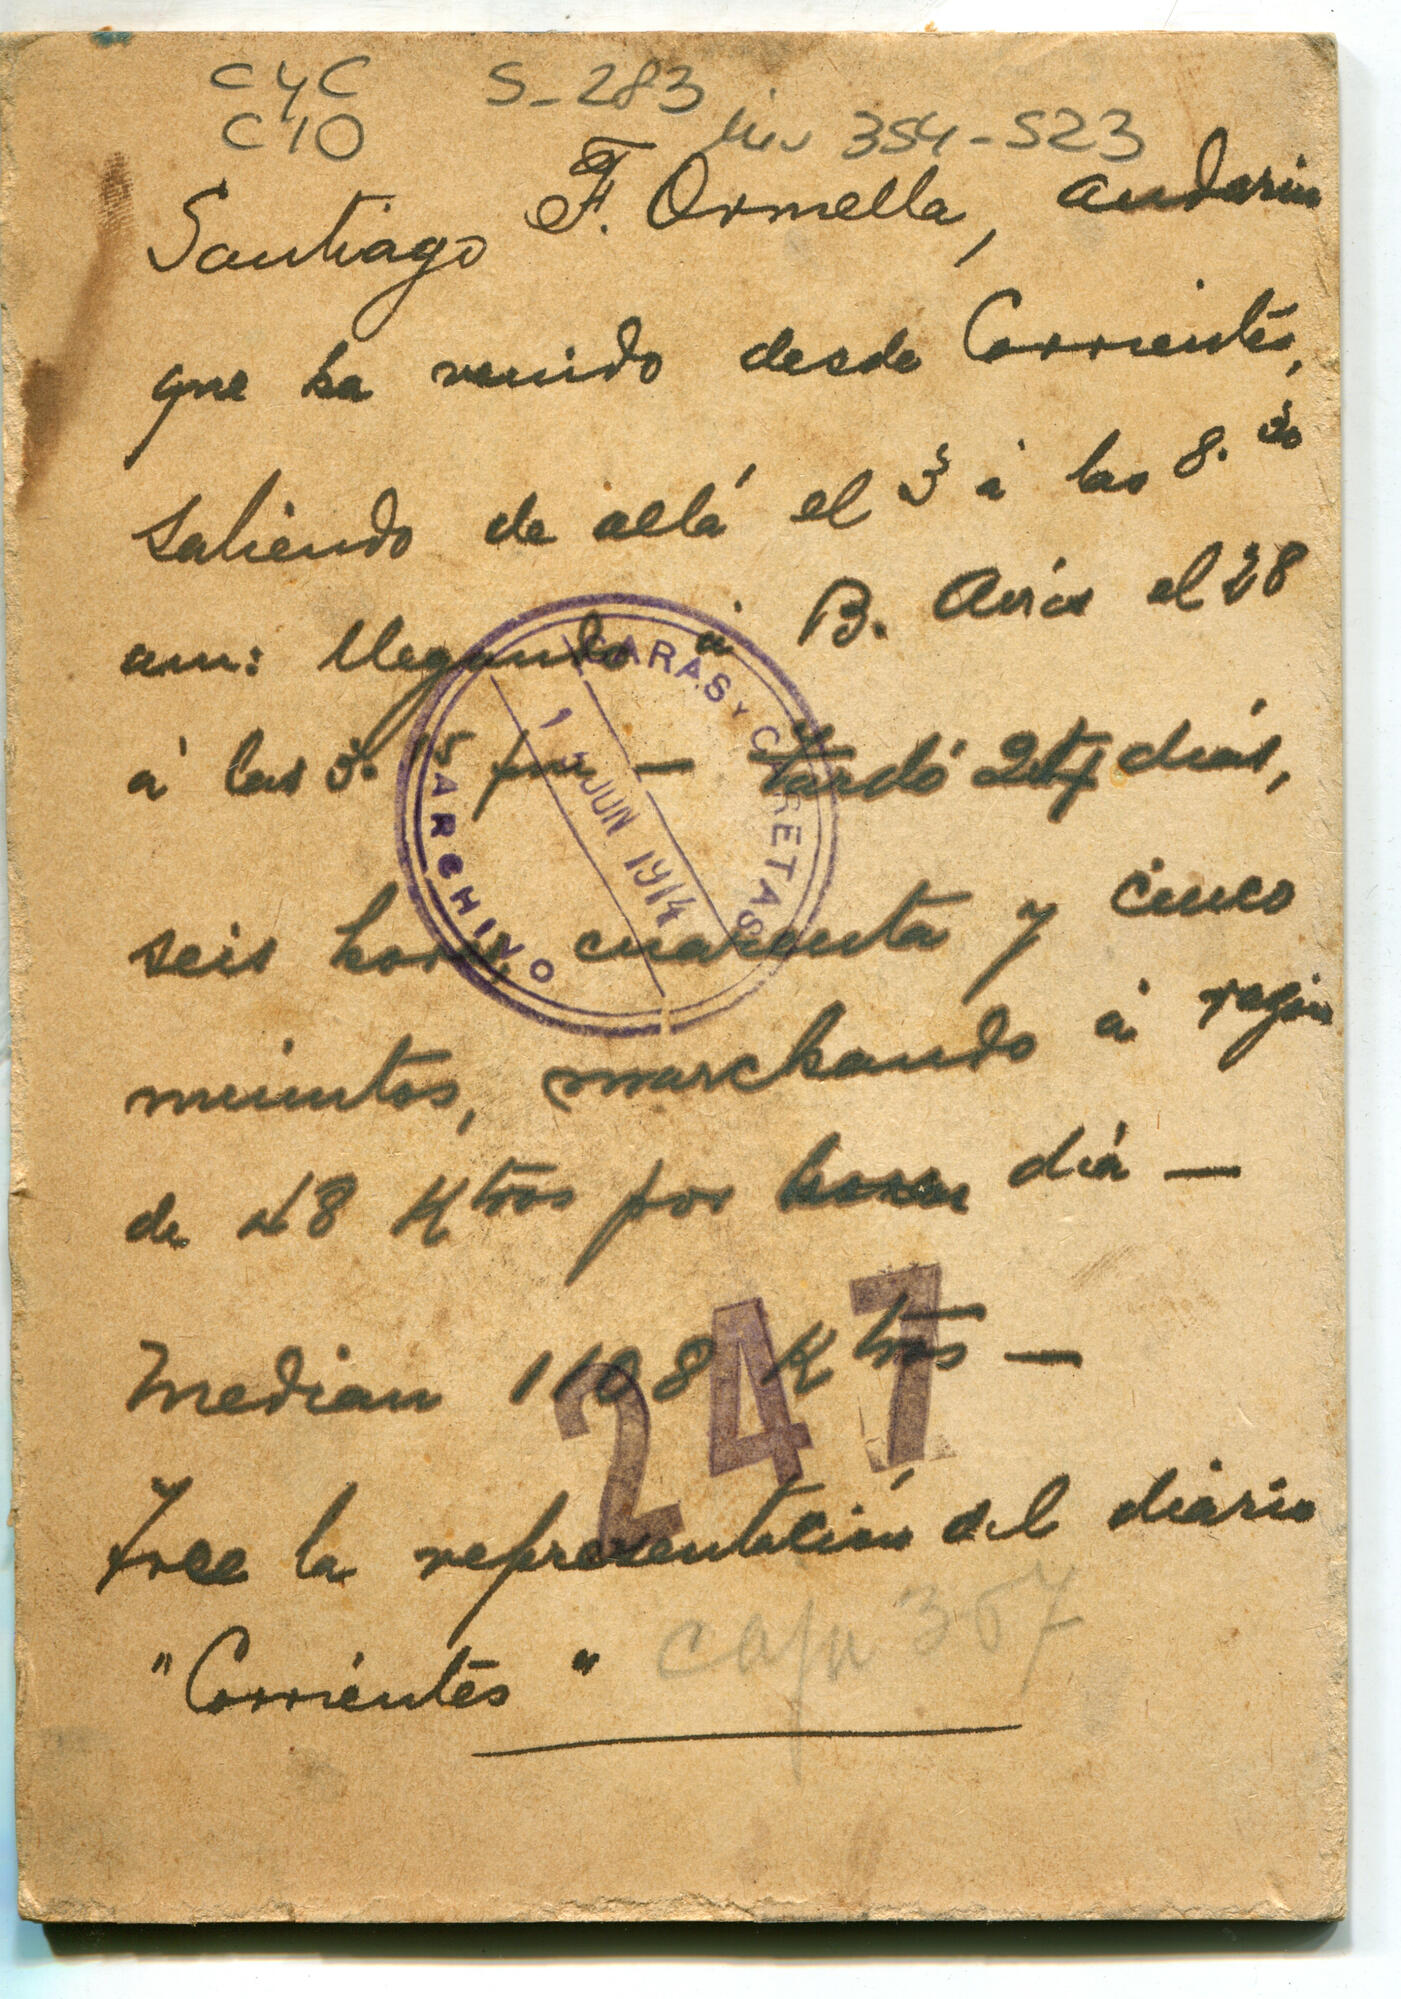 CYC S-283
C10 354-523
Santiago F. Ormella, andarin
que ha venido desde Corrientes,
saliendo de allá el 3 á las 8.30
am: llegando á B. Aires el 28
á las 3.15 pm — Tardó 24 dias,
seis horas cuarenta y cinco
minutos, marchando á
de 48 Ktros por dia —
Median 1108 Ktros —
Trae la representación del diario
"Corrientes"
caja 357
247
CARAS Y CARETAS
ARCHIVO
JUN 1914